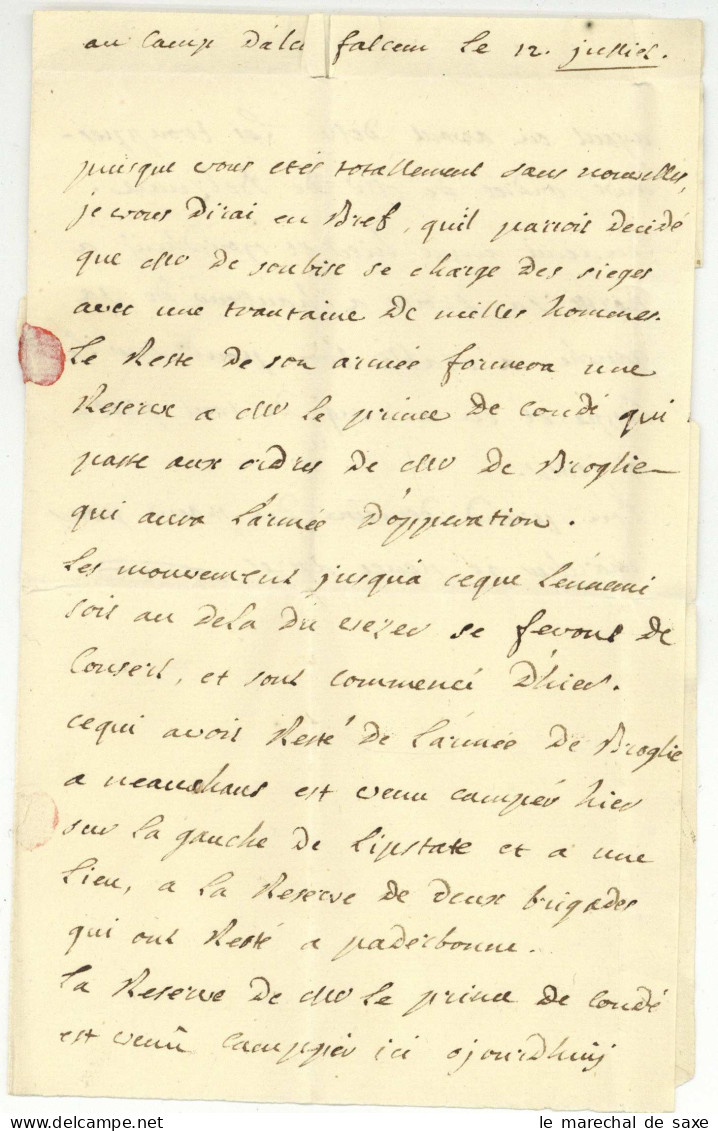 au Camp Dela falcem le 12. juillet.
puisque vous etés totallement sans nouvelles,
je vous Dirai en Bref, quil parroit Decidé
que Mr De soubise se charge Des sieges
avec une trantaine De milles hommes.
Le Reste De son armée formera une
Reserve a Mr Le prince De Condé qui
passe aux ordres De Mr De Broglie
qui aura Larmée Dopperation.
Les mouvement jusqua ceque Lennemi
soit au Dela Du wezer se feront De
Consert, et sont commencé Dhier.
cequi avoit Resté De Larmée De Broglie
a neauhaus est venu campér hier
sur La gauche De Lipstate et a une
Lieu, a La Reserve De Deux brigades
qui ont Resté a paderbonne.
La Reserve De Mr Le prince De Condé
est venû Camppér ici ojourdhuij
le marechal de saxe